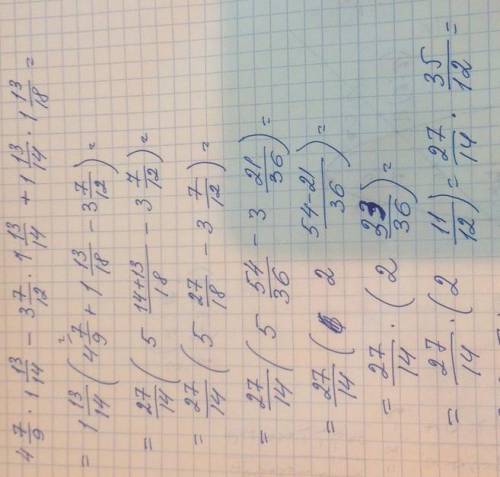 4 7/9 · 1 13/14 − 3 7/12 · 1 13/14 + 1 13/14 · 1 13/18 =
= 1 13/14 (4 7/9 + 1 13/18 − 3 7/12) =
= 27/14 (5 14+13/18 − 3 7/12) =
= 27/14 (5 27/18 − 3 7/12) =
= 27/14 (5 54/36 − 3 21/36) =
= 27/14 (2 54−21/36) =
= 27/14 · (2 33/36) =
= 27/14 · (2 11/12) = 27/14 · 35/12 =